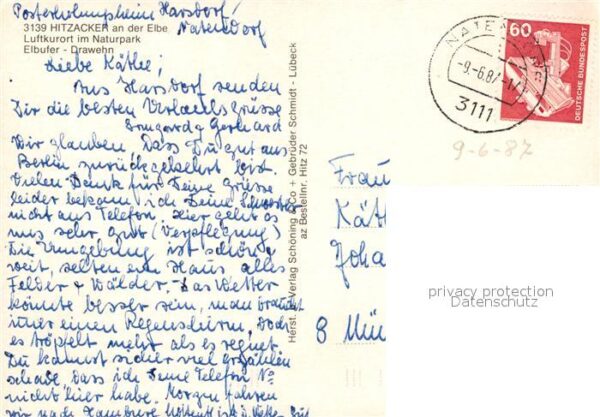 Posterholungsheim Harsdorf/
Natendorf
3139 HITZACKER an der Elbe
Luftkurort im Naturpark
Elbufer - Drawehn
Liebe Käthe;
Aus Harsdorf senden
Dir die besten Urlaubsgrüsse
Ermgard & Gerhard
Wir glauben. Dass Du gut aus
Berlin zurückgekehrt bist.
Vielen Dank für Deine Grüsse
leider bekam ich Deine Schwester
nicht ans Telefon. Hier geht es
uns sehr gut (Verpflegung)
Die Umgebung ist schön,
weit, selten ein Haus alles
Felder + Wälder. Das Wetter
könnte besser sein, man braucht
immer einen Regenschirm, doch
es tröpfelt mehr als es regnet
Du kannst sicher viel erzählen
schade, dass ich Deine Telefon No
nicht hier habe. Morgen fahren
wir nach Hamburg
Herst. u. Verlag Schöning & Co + Gebrüder Schmidt - Lübeck
az Bestellnr. Hitz 72
60
DEUTSCHE BUNDESPOST
-9.-6.87
3111
9-6-87
Frau
Käth
Joha
8 Mün
privacy protection
Datenschutz